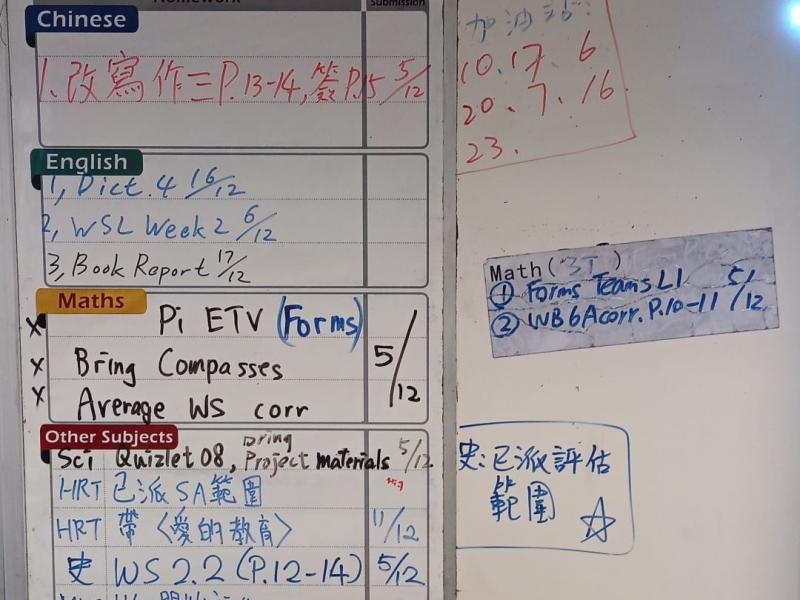 Homework
Submission
Chinese
1. 改寫作三P.13-14, 簽P.15 5/12
English
1, Dict. 4 16/12
2, WSL Week 2 6/12
3, Book Report 17/12
Maths
x Pi ETV (Forms)
x Bring Compasses 5/12
x Average WS corr
Other Subjects
Sci Quizlet 08, Bring Project materials 5/12
HRT 已派SA範圍
HRT 帶〈愛的教育〉 11/12
史 WS 2.2 (P.12-14) 5/12
加油站:
10. 17. 6
20. 7. 16
23.
Math(3T)
① Forms Teams L1 5/12
② WB 6A corr. P.10-11
史:已派評估
範圍